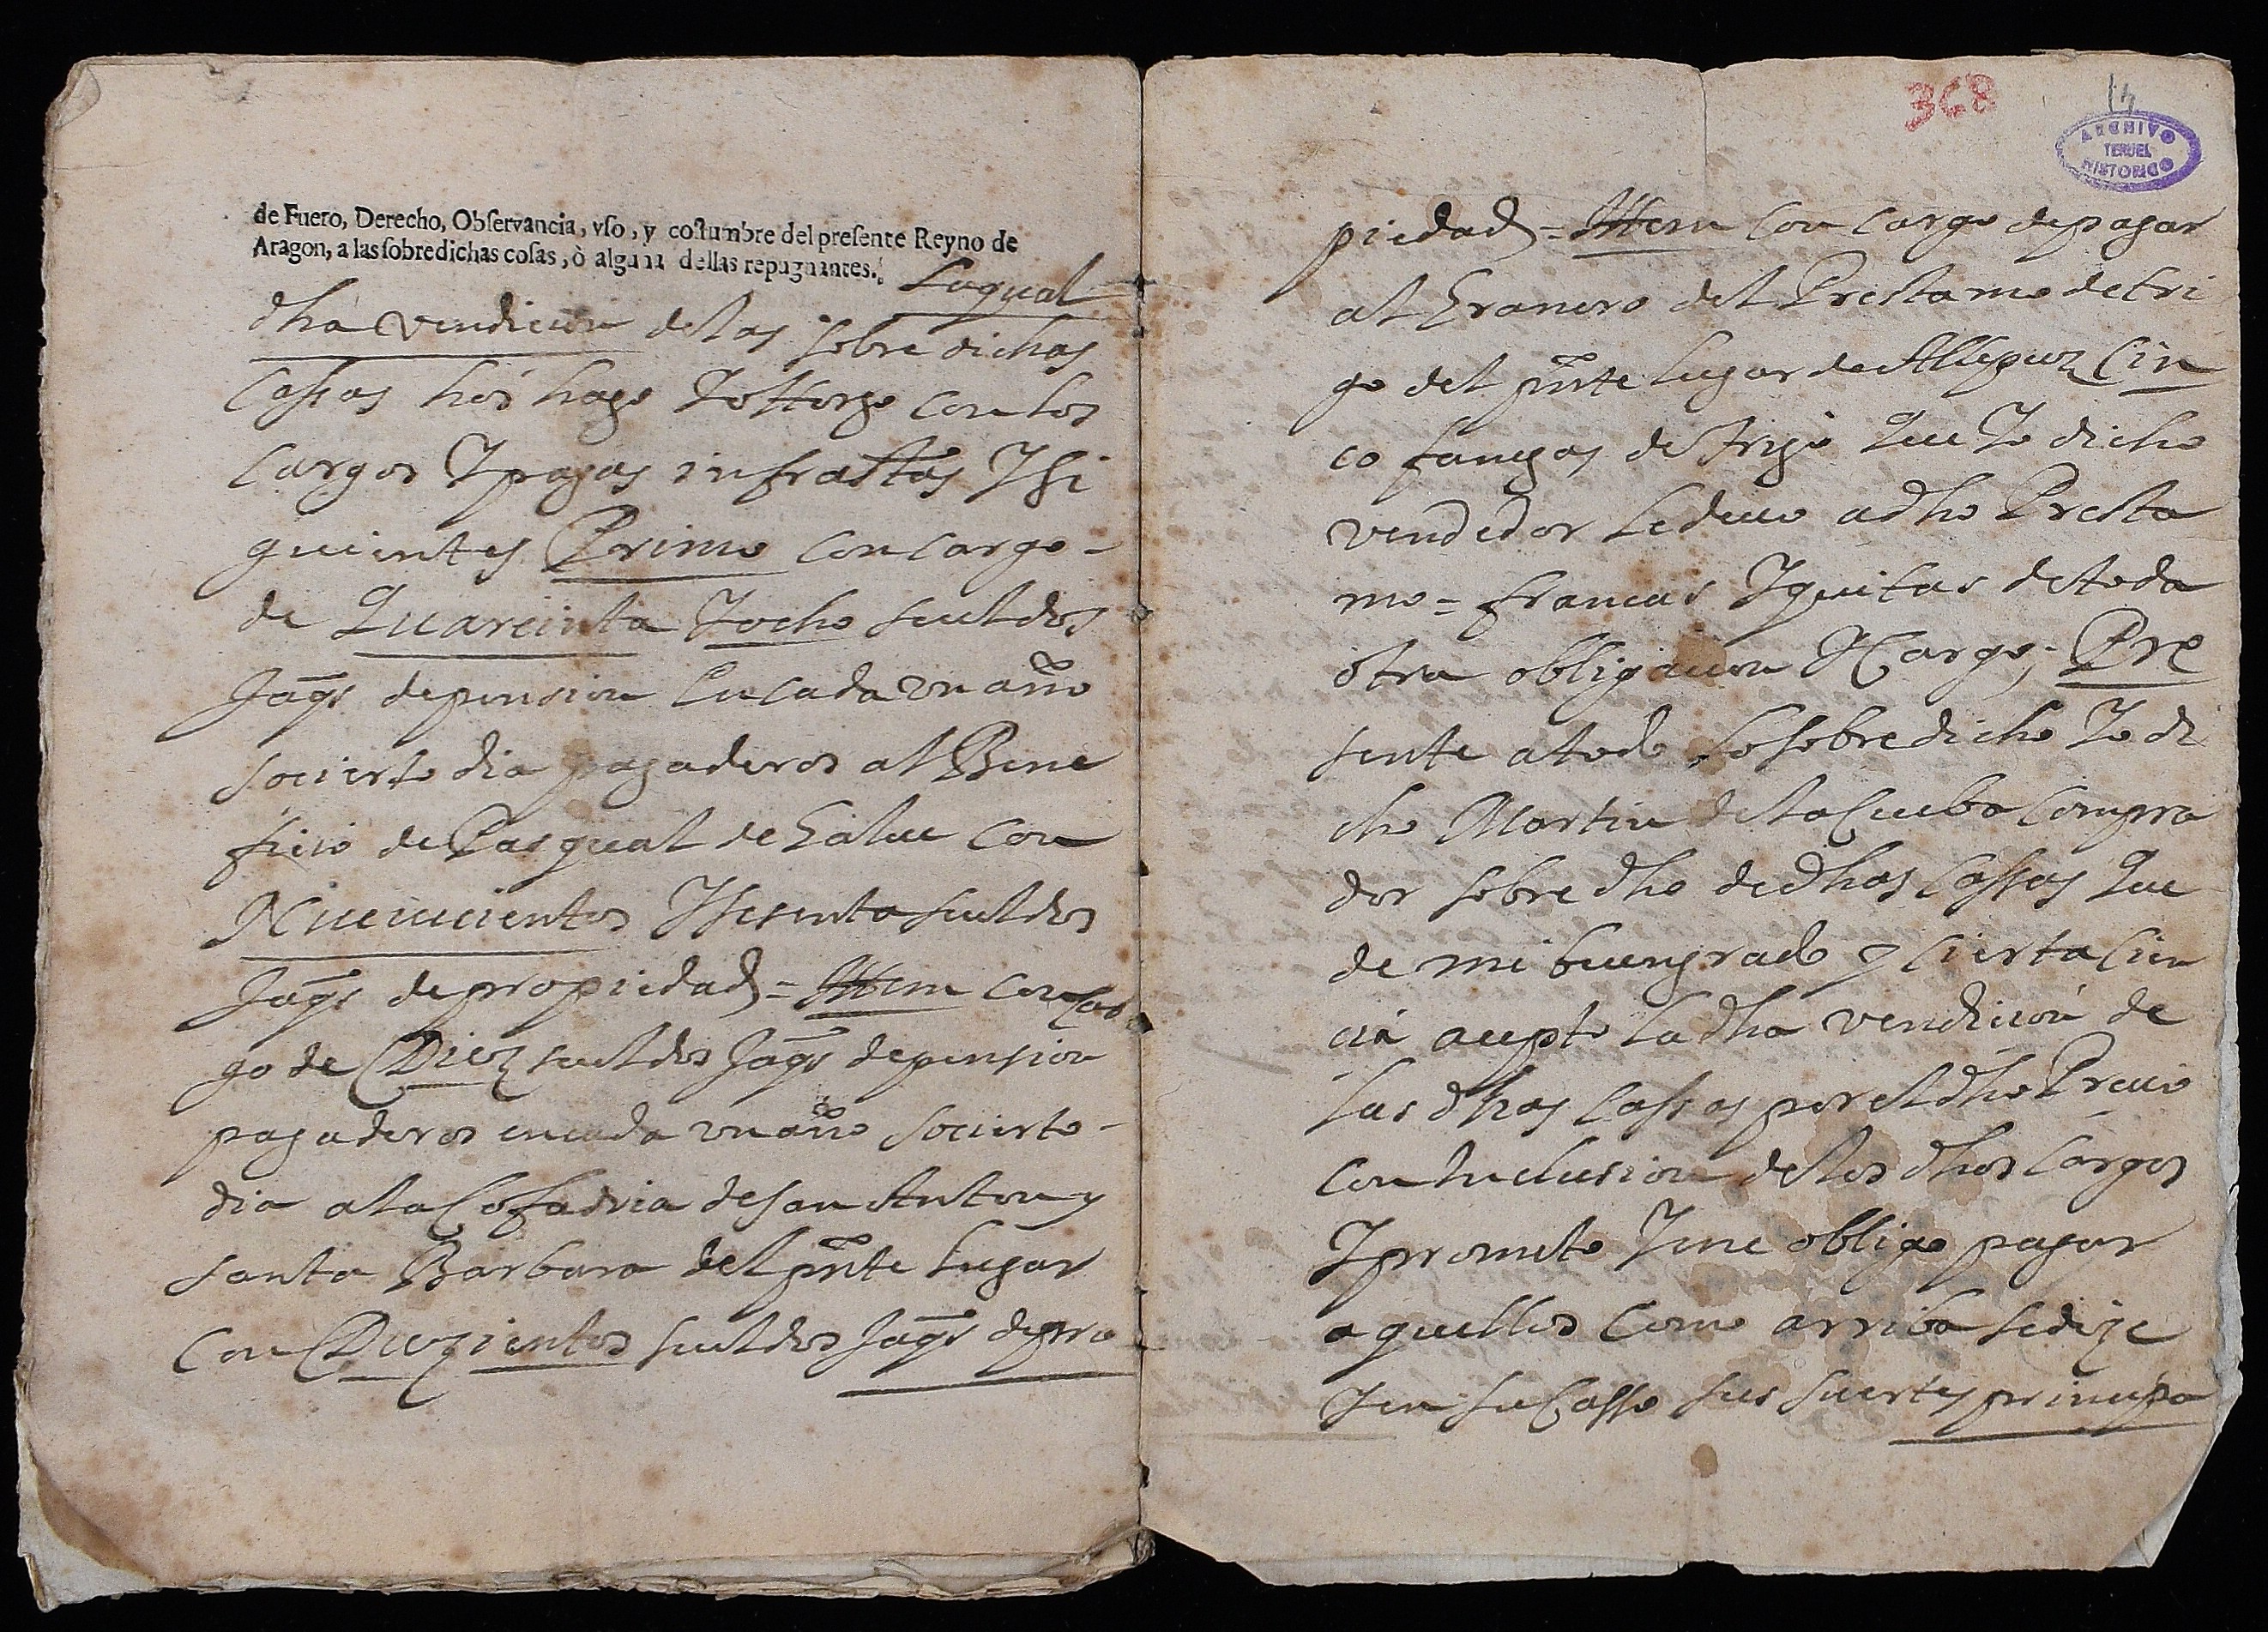 de Fuero, Derecho, Obſervancia, vſo, y coſtumbre del preſente Reyno de
Aragon, a las ſobredichas coſas, ò alguna dellas repugnantes. Laqual
dha vendicion de las sobre dichas
Cassas hos hago Y ottorgo con los
Cargos Y pagas infrattos Y si
guientes Primo con cargo -
de Quareinta Y ocho sueldos
Jaqs de pension en cada vn año
so cierto dia pagaderos al Bene
ficio de Pasqual de Galue con
Nuevecientos Y sesenta sueldos
Jaqs de propiedad = Ittem con car
go de Diez sueldos Jaqs de pension
pagaderos en cada vn año so cierto -
dia a la Cofadria de San Anton y
Santa Barbara del pnte lugar
con Duzientos sueldos Jaqs de pro
368
14
ARCHIVO
TERUEL
HISTORICO
piedad = Ittem con cargo de pagar
al Granero del Prestamo de tri
go del pnte lugar de Allepuz Cin
co fanegas de trigo que Yo dicho
vendedor le devo a dho Presta
mo = francas Y quitas de toda
otra obligacion Y Cargo; Pre
sente a todo lo sobre dicho Yo di
cho Martin de la Cueba Compra
dor sobre dho de dhas Cassas que
de mi buen grado y cierta cien
cia acepto la dha vendicion de
las dhas Cassas por el dho Precio
con Inclusion de los dhos Cargos
Y prometo Y me obligo pagar
aquellos como arriba se dize
Y en su Casso sus suertes principa